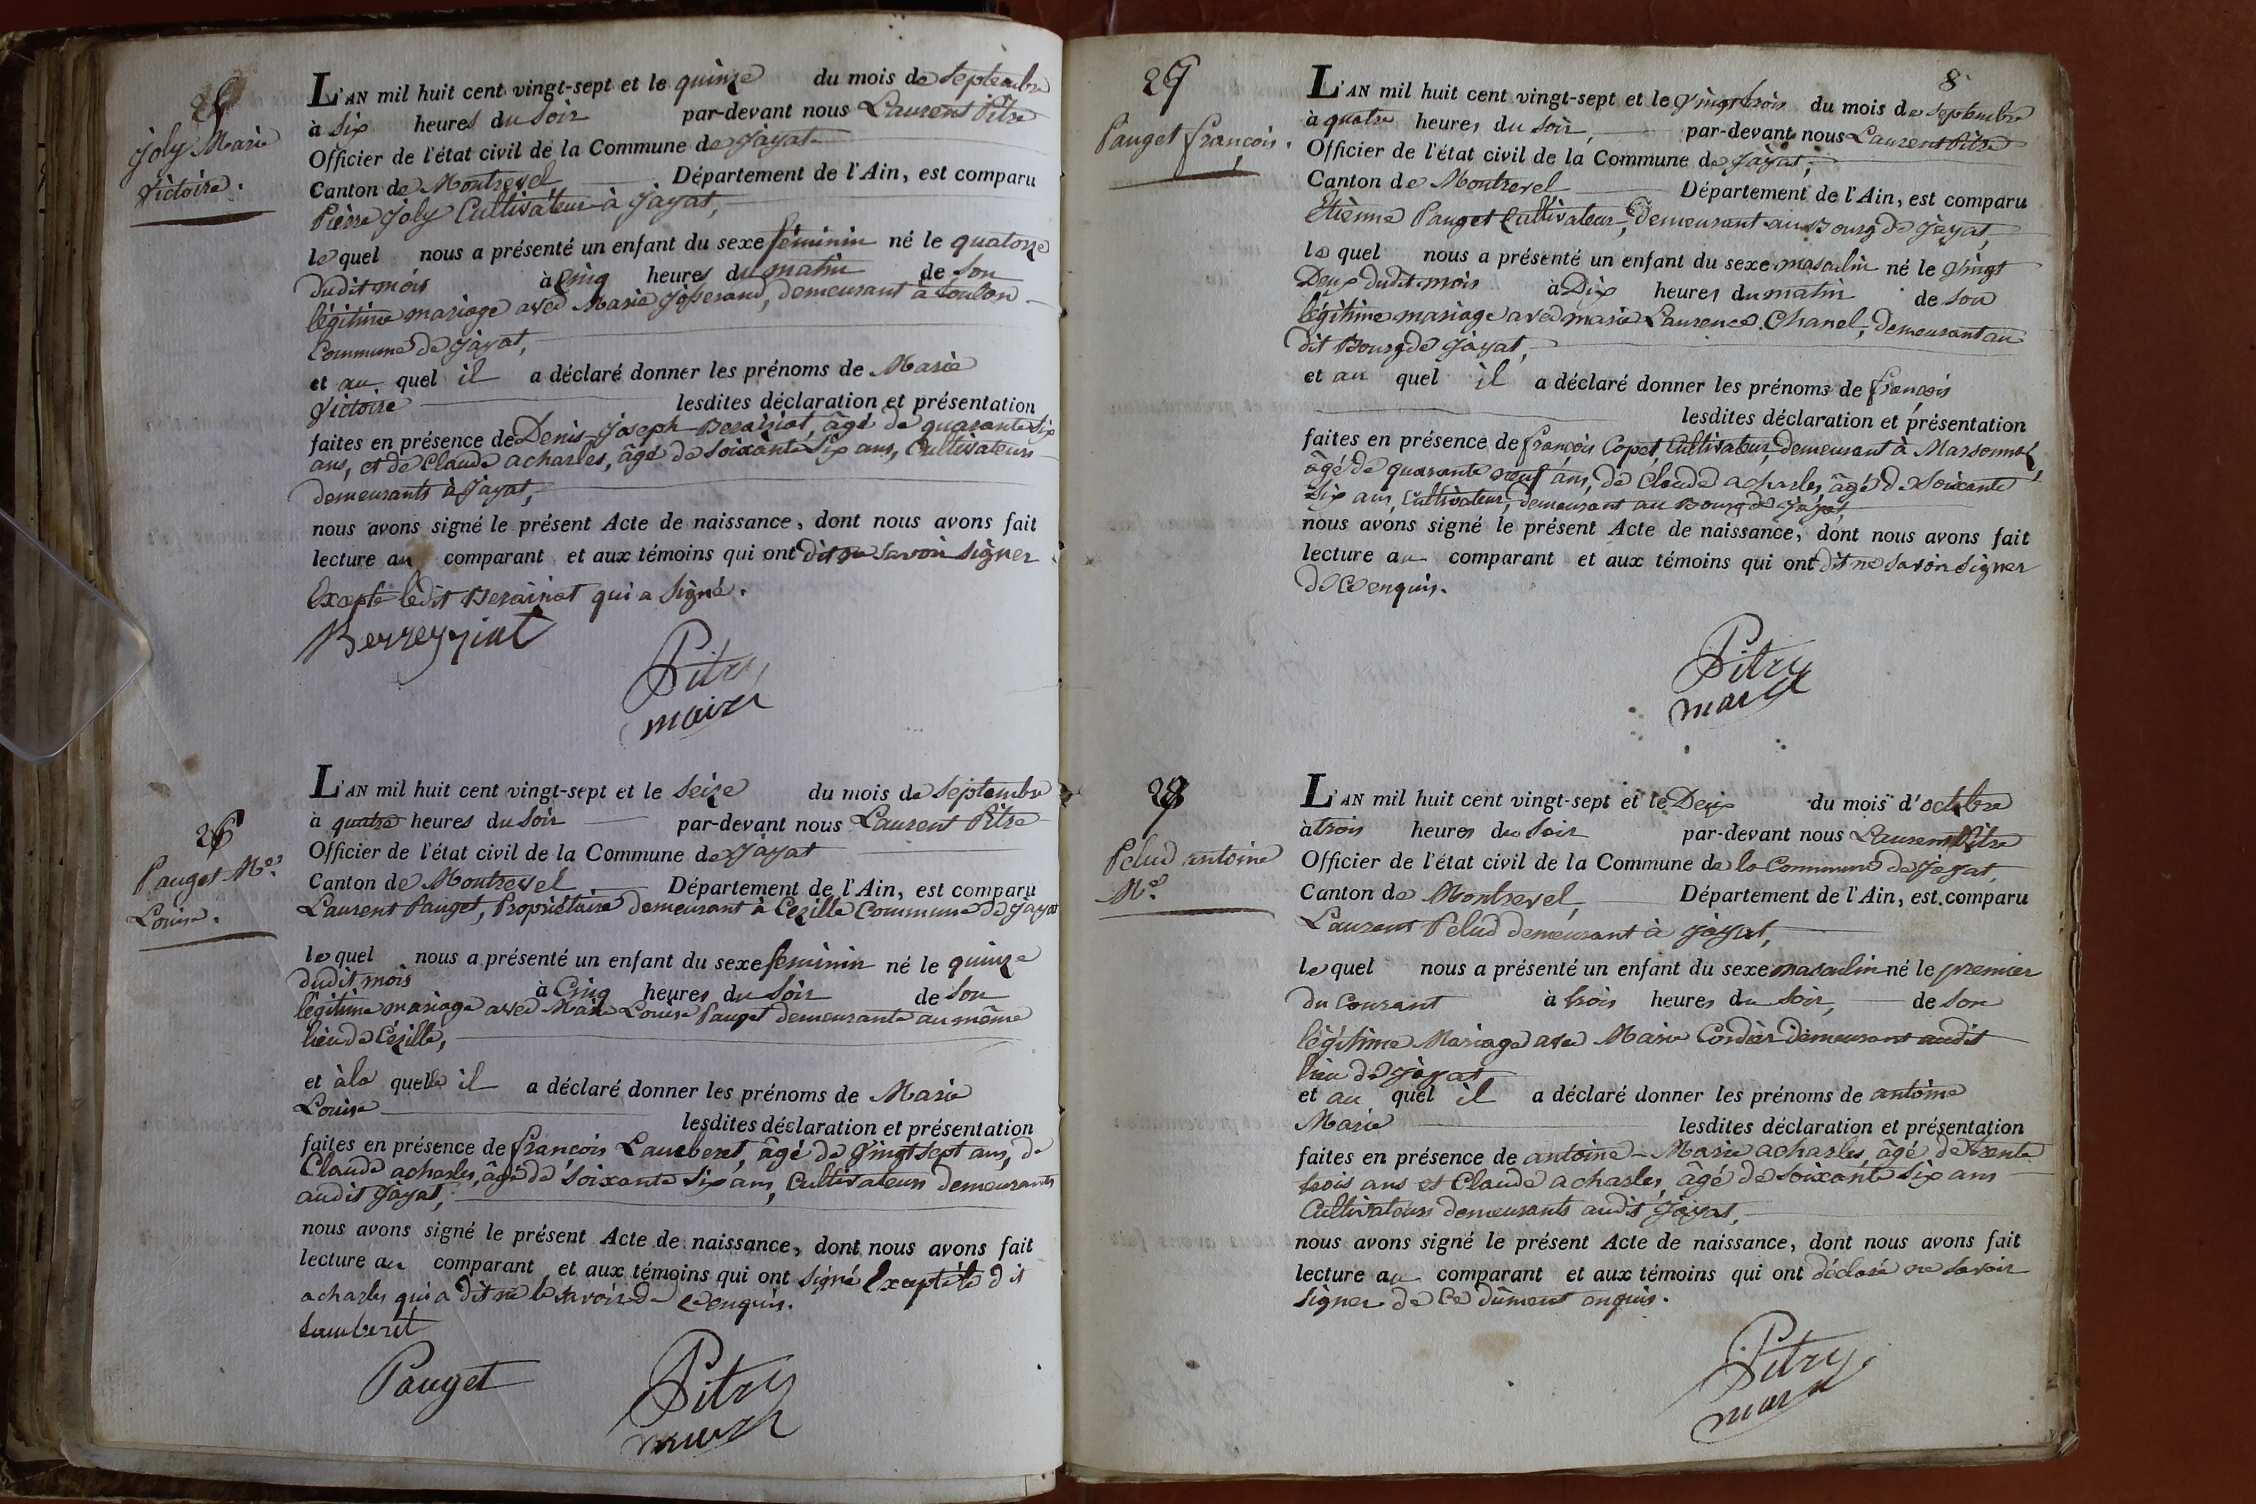 Joly Marie
Victoire.
L'AN mil huit cent vingt-sept et le quinze du mois de septembre
à six heures du soir par-devant nous Laurent Pitre
Officier de l'état civil de la Commune de Jayat
Canton de Montrevel Département de l'Ain, est comparu
Pierre Joly Cultivateur à Jayat,
lequel nous a présenté un enfant du sexe féminin né le quatorze
dudit mois à Cinq heures du matin de son
légitime mariage avec Marie Josserand, demeurant à
Commune de Jayat,
et au quel il a déclaré donner les prénoms de Marie
Victoire lesdites déclaration et présentation
faites en présence de Denis-Joseph âgé de quarante six
ans, et de Claude acharles, âgé de soixante six ans, Cultivateurs
demeurants à Jayat,
nous avons signé le présent Acte de naissance, dont nous avons fait
lecture au comparant et aux témoins qui ont dit ne savoir signer
Excepté ledit qui a signé.
Berreyziat
Pitre
maire
26
Pauget Mie
Louise.
L'AN mil huit cent vingt-sept et le seize du mois de septembre
à quatre heures du soir par-devant nous Laurent Pitre
Officier de l'état civil de la Commune de Jayat
Canton de Montrevel Département de l'Ain, est comparu
Laurent Pauget, Propriétaire demeurant à Cézille Commune de Jayat
lequel nous a présenté un enfant du sexe feminin né le quinze
dudit mois à Cinq heures du soir de son
légitime mariage avec Marie Louise Pauget demeurante au même
lieu de Cézille,
et à la quelle il a déclaré donner les prénoms de Marie
Louise lesdites déclaration et présentation
faites en présence de francois âgé de vingt sept ans, de
Claude acharles, âgé de soixante six ans, Cultivateurs demeurants
audit Jayat,
nous avons signé le présent Acte de naissance, dont nous avons fait
lecture au comparant et aux témoins qui ont signé Excepté le dit
acharles qui a dit ne le savoir de ce enquis.
Pauget
Pitre
maire
8
Pauget francois.
L'AN mil huit cent vingt-sept et le vingt trois du mois de septembre
à quatre heures du soir par-devant nous Laurent Pitre
Officier de l'état civil de la Commune de Jayat,
Canton de Montrevel Département de l'Ain, est comparu
Etienne Pauget Cultivateur, demeurant au Bourg de Jayat,
lequel nous a présenté un enfant du sexe masculin né le vingt
Deux dudit mois à Dix heures du matin de son
légitime mariage avec marie Laurence Chanel, demeurant au
dit Bourg de Jayat,
et au quel il a déclaré donner les prénoms de francois
lesdites déclaration et présentation
faites en présence de francois Copet, Cultivateur, demeurant à Marsonnas,
âgé de quarante neuf ans, de Claude acharles, âgé de soixante
six ans, Cultivateur, demeurant au Bourg de Jayat,
nous avons signé le présent Acte de naissance, dont nous avons fait
lecture au comparant et aux témoins qui ont dit ne savoir signer
de ce enquis.
Pitre
maire
Pelud antoine
Mie
L'AN mil huit cent vingt-sept et le Deux du mois d'octobre
à trois heures du soir par-devant nous Laurent Pitre
Officier de l'état civil de la Commune de la Commune de Jayat,
Canton de Montrevel, Département de l'Ain, est comparu
Laurent Pelud demeurant à Jayat,
lequel nous a présenté un enfant du sexe masculin né le premier
du Courant à trois heures du soir, de son
légitime Mariage avec Marie Cordier demeurant audit
lieu de Jayat
et au quel il a déclaré donner les prénoms de antoine
Marie lesdites déclaration et présentation
faites en présence de antoine-Marie acharles, âgé de trente
trois ans et Claude acharles, âgé de soixante six ans
Cultivateurs demeurants audit Jayat,
nous avons signé le présent Acte de naissance, dont nous avons fait
lecture au comparant et aux témoins qui ont déclaré ne savoir
signer de ce dûment enquis.
Pitre
maire